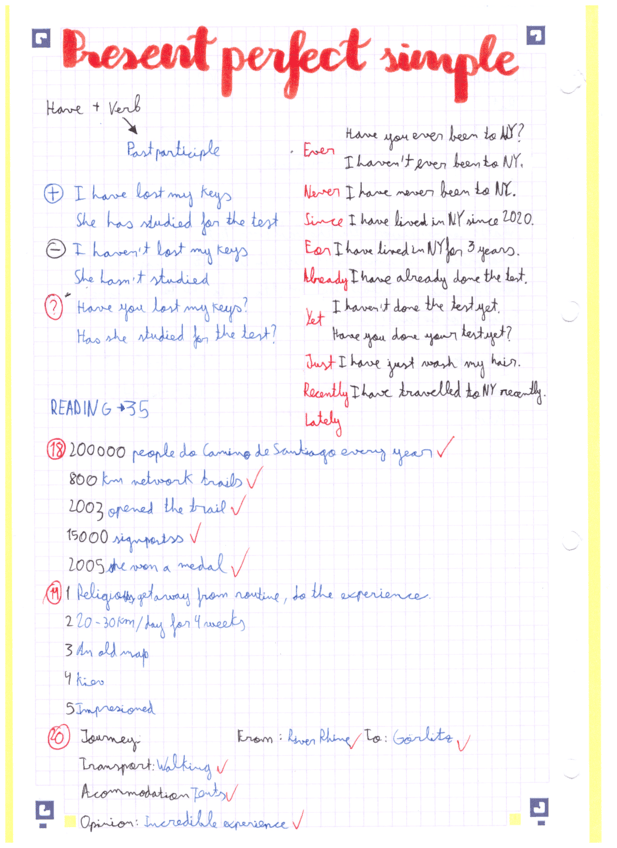 Present perfect simple
Have + Verb
Past participle
+ I have lost my keys
She has studied for the test
- I haven't lost my keys
She hasn't studied
? Have you lost my keys?
Has she studied for the test?
Ever Have you ever been to NY?
I haven't ever been to NY.
Never I have never been to NY.
Since I have lived in NY since 2020.
For I have lived in NY for 3 years.
Already I have already done the test.
Yet I haven't done the test yet.
Have you done your test yet?
Just I have just wash my hair.
Recently I have travelled to NY recently.
Lately
READING → 35
18 200000 people do Camino de Santiago every year ✓
800 km network trails ✓
2003 opened the trail ✓
15000 ✓
2005 she won a medal ✓
19 1 get away from routine, to the experience.
2 20-30 km/day for 4 weeks
3 An old map
4 Kiev
5 Impresioned
20 Journey From: River Rhine ✓ To: Görlitz ✓
Transport: Walking ✓
Acommodation Tents ✓
Opinion: Incredible experience ✓